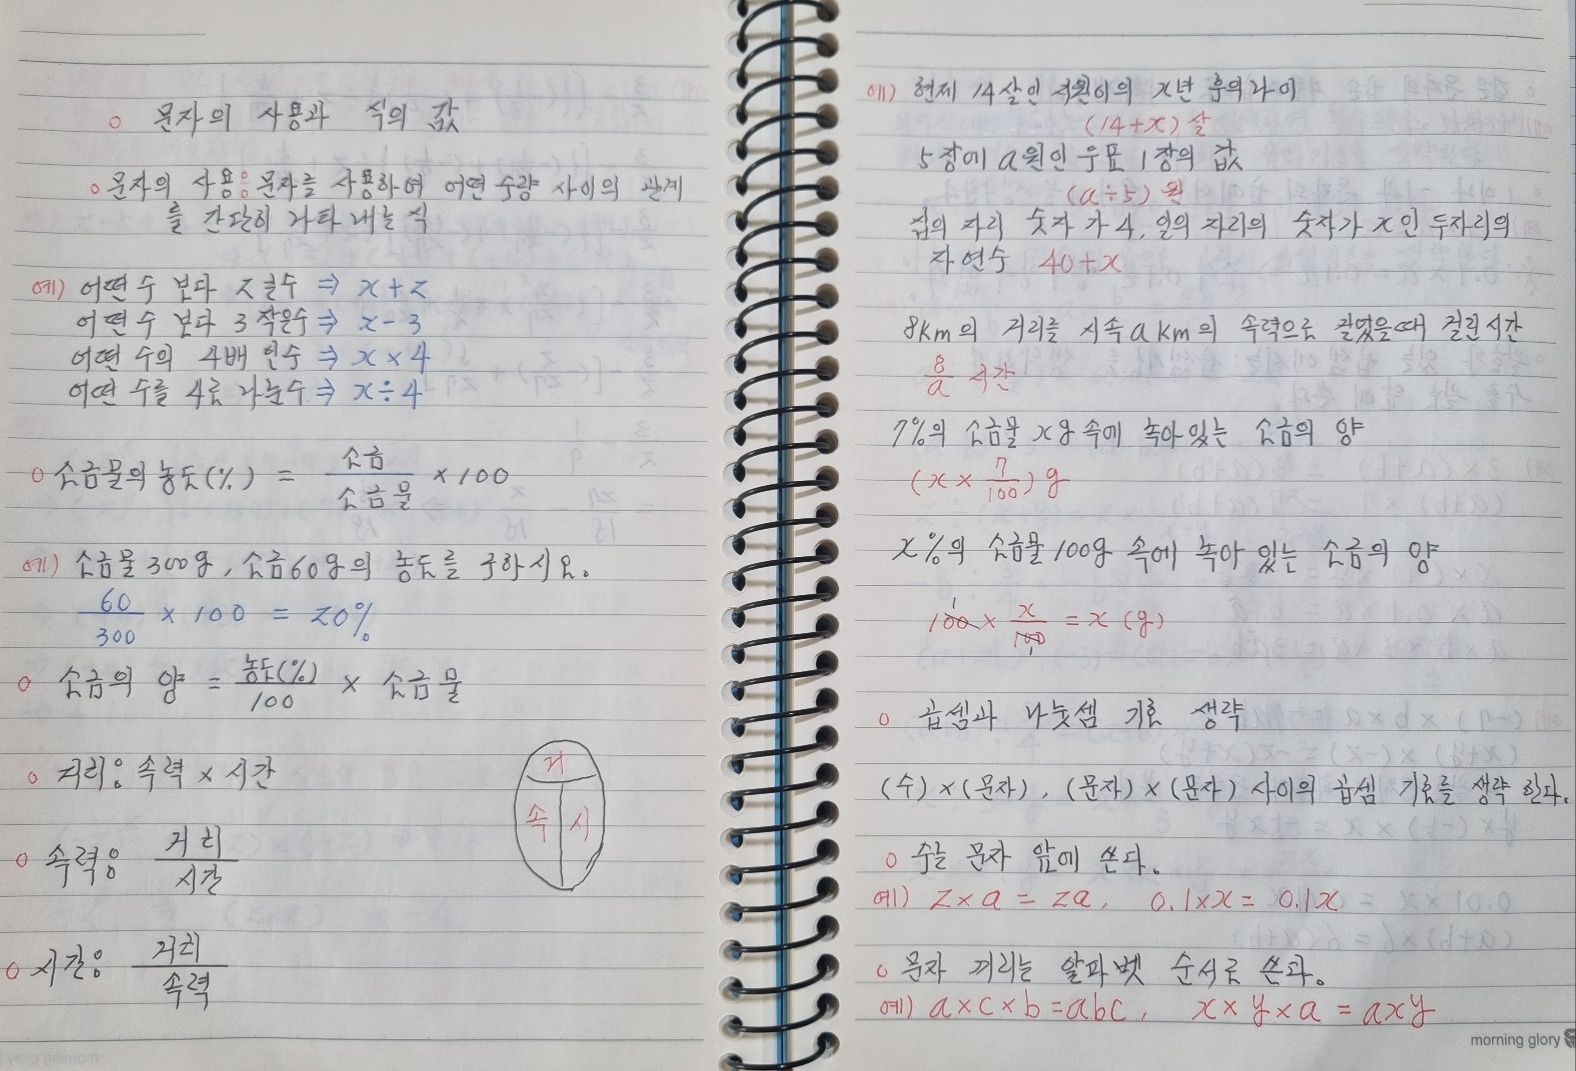 ○ 문자의 사용과 식의 값
○ 문자의 사용: 문자를 사용하여 어떤 수량 사이의 관계
를 간단히 나타 내는 식
예) 어떤수 보다 2 큰수 ⇒ x+2
어떤수 보다 3 작은수 ⇒ x-3
어떤 수의 4배 인수 ⇒ x×4
어떤 수를 4로 나눈수 ⇒ x÷4
○ 소금물의 농도(%) = 소금/소금물 ×100
예) 소금물 300g, 소금60g의 농도를 구하시오.
60/300 × 100 = 20%
○ 소금의 양 = 농도(%)/100 × 소금물
○ 거리: 속력 × 시간
거
속 시
○ 속력: 거리/시간
○ 시간: 거리/속력
예) 현재 14살인 서원이의 x년 후의 나이
(14+x) 살
5장에 a원인 우표 1장의 값
(a÷5) 원
십의 자리 숫자가 4, 일의 자리의 숫자가 x인 두자리의
자연수 40+x
8km의 거리를 시속 a km의 속력으로 걸었을때 걸린시간
8/a 시간
7%의 소금물 xg 속에 녹아있는 소금의 양
(x × 7/100) g
x%의 소금물 100g 속에 녹아 있는 소금의 양
100 × x/100 = x (g)
○ 곱셈과 나눗셈 기호 생략
(수)×(문자), (문자)×(문자) 사이의 곱셈 기호를 생략 한다.
○ 수는 문자 앞에 쓴다.
예) 2×a = 2a, 0.1×x = 0.1x
○ 문자 끼리는 알파벳 순서로 쓴다.
예) a×c×b = abc, x×y×a = axy
morning glory